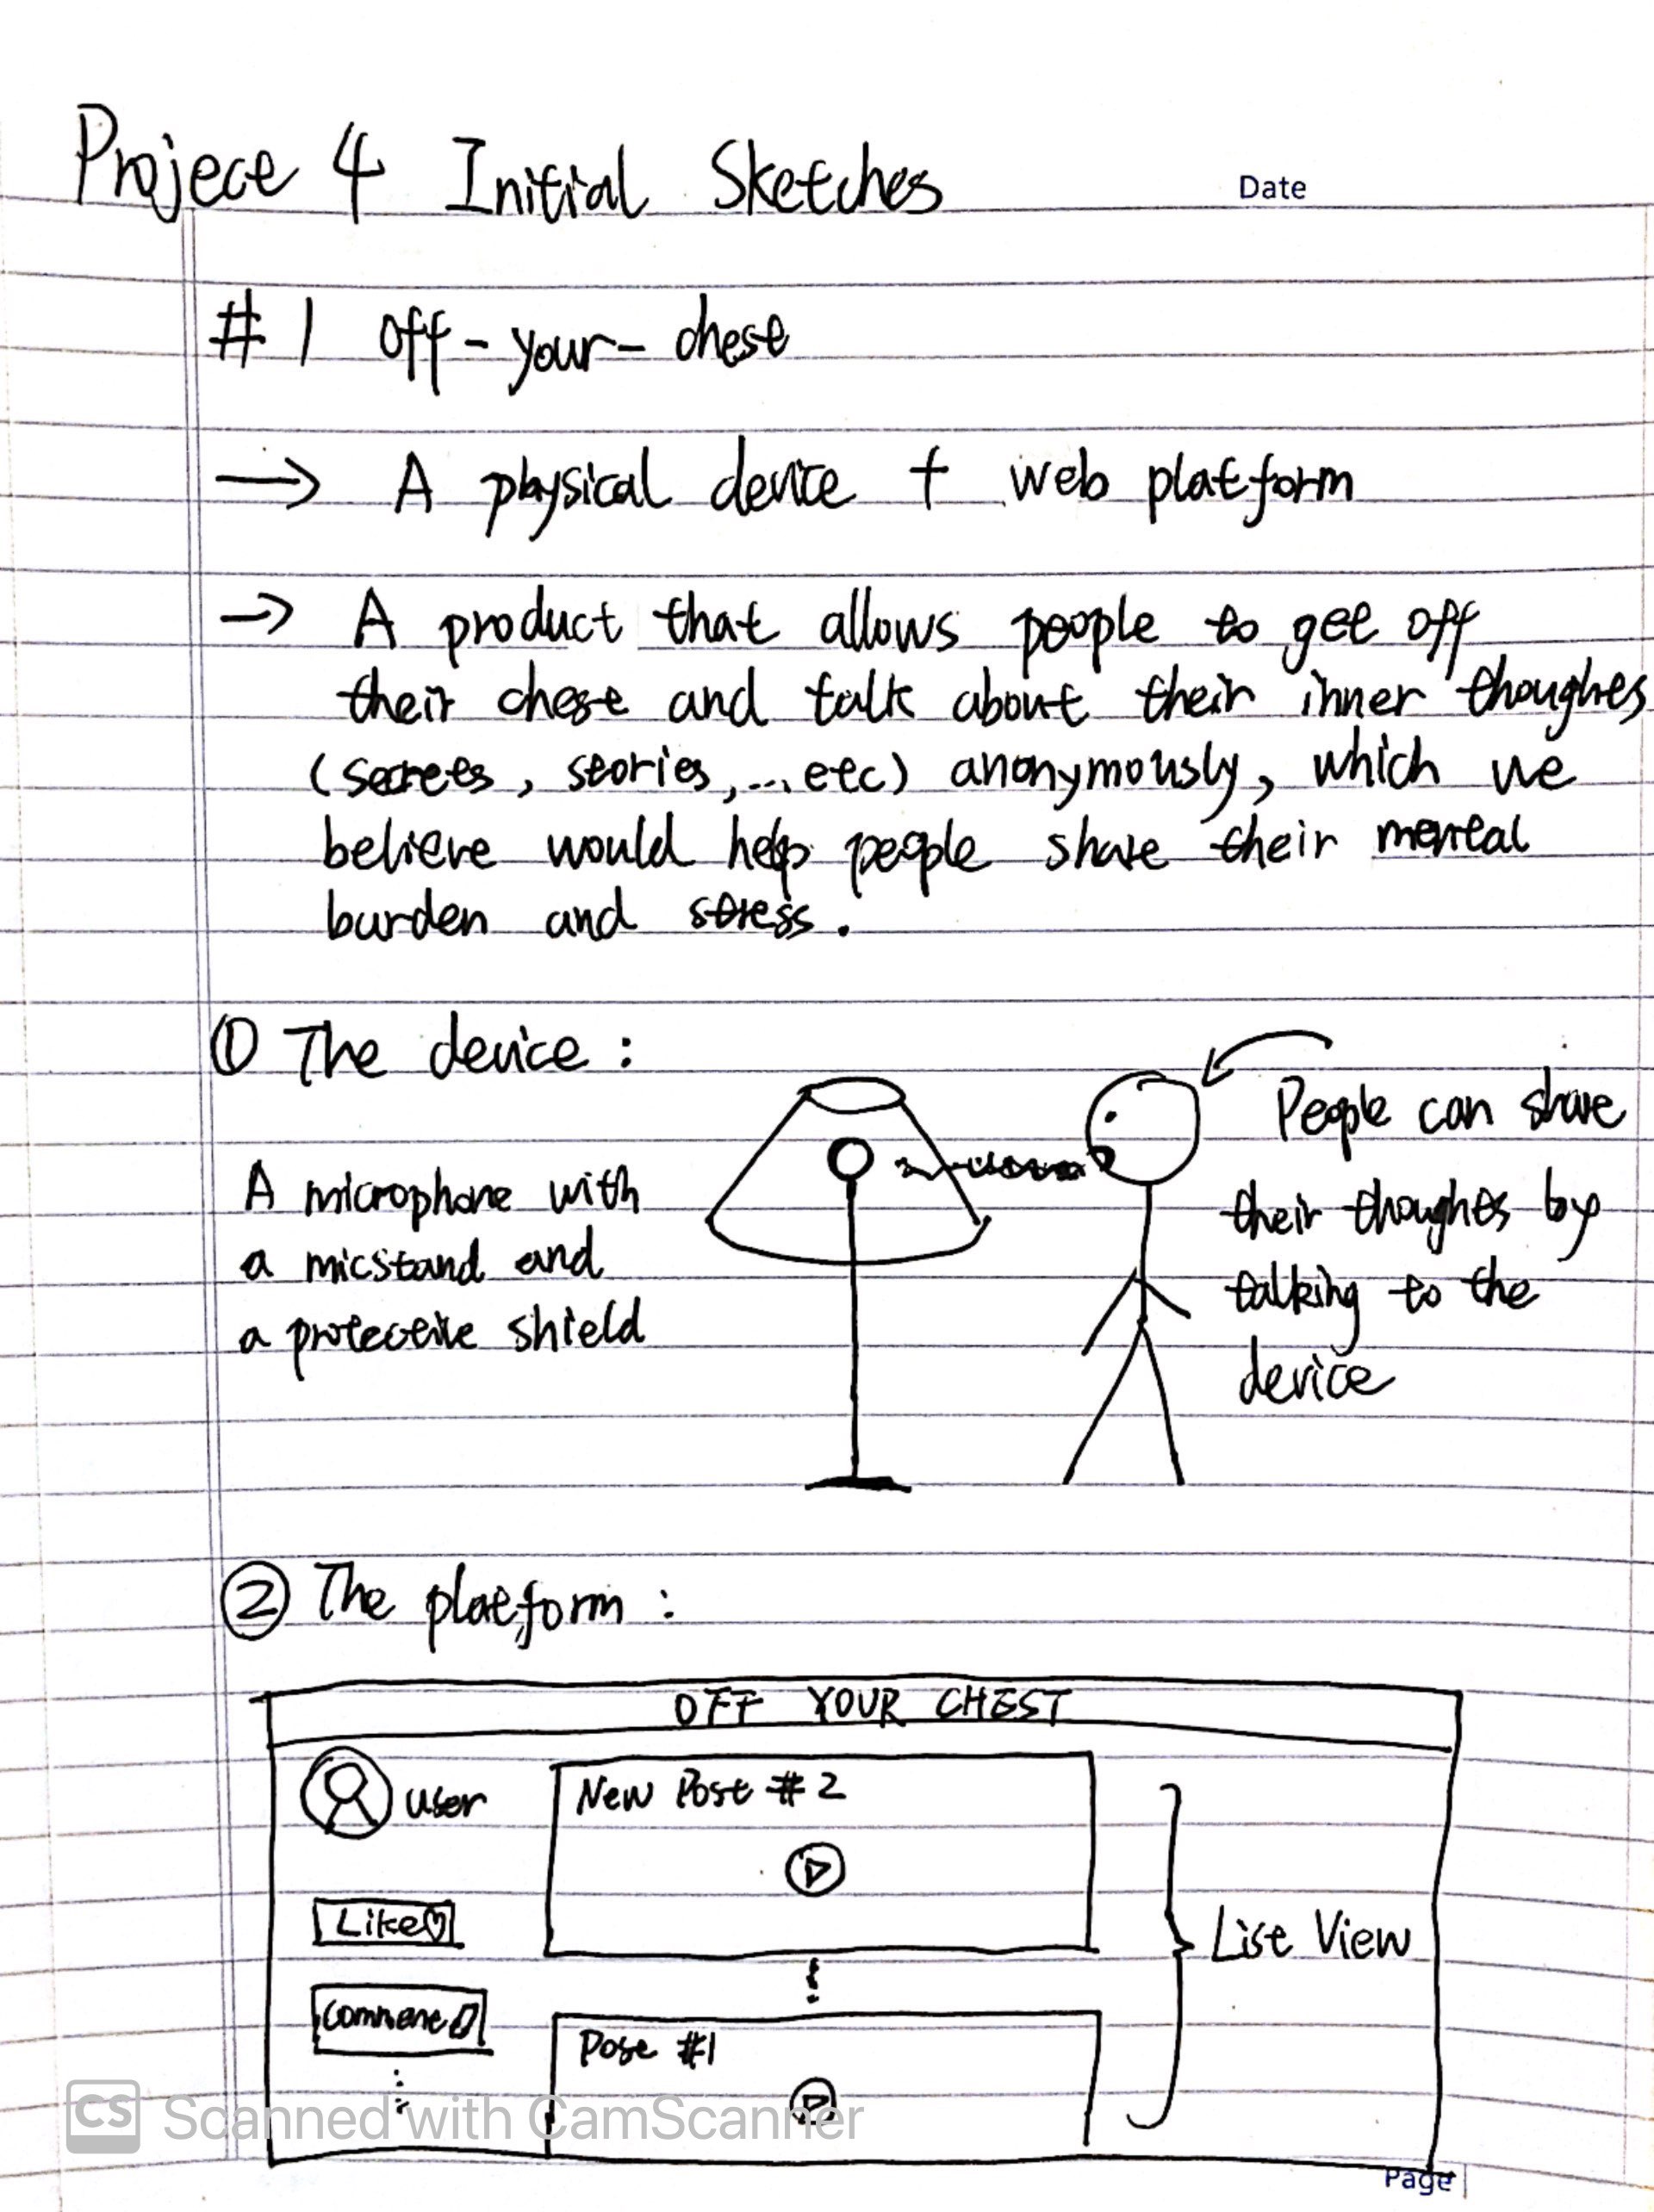 Project 4 Initial Sketches
Date
#1 off-your-chest
→ A physical device + web platform
→ A product that allows people to get off
their chest and talk about their inner thoughts
(secrets, stories,...etc) anonymously, which we
believe would help people share their mental
burden and stress.
① The device:
A microphone with
a micstand and
a protective shield
People can share
their thoughts by
talking to the
device
② The platform:
OFF YOUR CHEST
user
New Post #2
Like♡
List View
Comment
Post #1
CS Scanned with CamScanner
Page